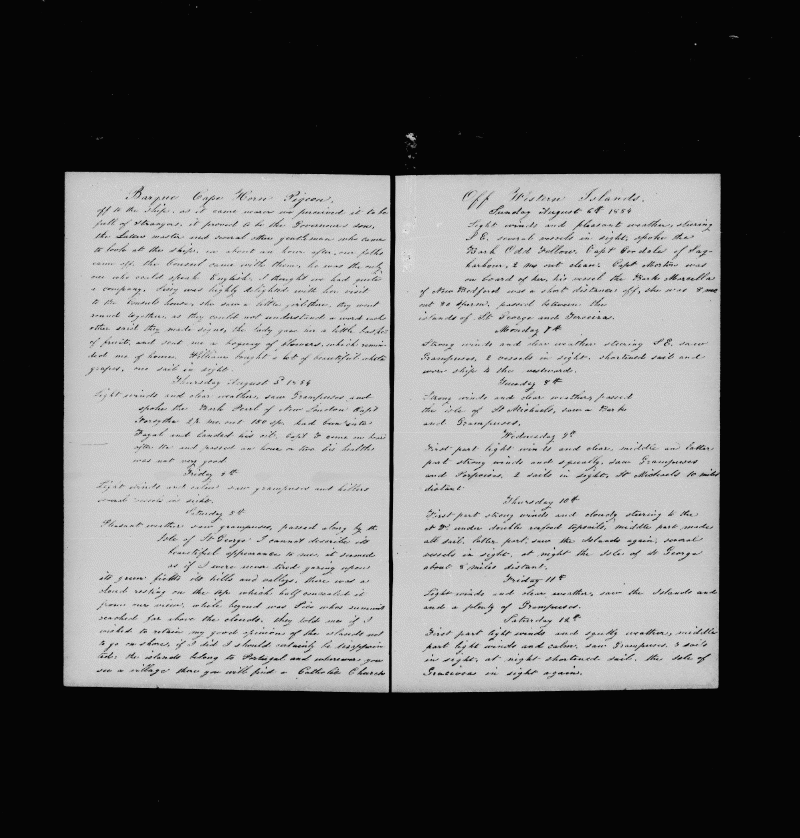 Barque Cape Horn Pigeon.
off to the ship, as it came nearer we perceived it to be
full of strangers, it proved to be the Governours son,
the Letters master and several other gentleman who came
to look at the ship, in about an hour after, our folks
came off, the Consul came with them, he was the only
one who could speak English, I thought we had quite
a company, was highly delighted with her visit
to the Consuls house, she saw a little girl there, they went
round together, as they could not understand a word each
other said they made signs, the lady gave her a little basket
of fruit, and sent me a boquey of flowers, which remin-
ded me of home. William bought a lot of beautiful white
grapes, one sail in sight.
Thursday August 3d 1854
Light winds and clear weather, saw Grampuses, and
spoke the Bark Perl of New London Capt
Forsythe 28 mo. out 180 sp. had been into
Fayal and landed his oil, Capt F came on board
after tea and passed an hour or two his health
was not very good
Friday 4th
Light winds and calm saw grampuses and killers
several vessels in sight.
Saturday 5th
Pleasant weather saw grampuses, passed along by the
Isle of St George I cannot describe its
beautiful appearance to me, it seemed
as if I were never tired gazing upon
its green fields its hills and valleys, there was a
cloud resting on the top which half concealed it
from our view, while beyond was Pico whos summit
reached far above the clouds, they told me if I
wished to retain my good opinion of the islands not
to go on shore, if I did I should certainly be disappoin
ted, the islands belong to Portugal and wherever you
see a village there you will find a Catholic Church
Off Western Islands.
Sunday August 6th 1854
Light winds and pleasant weather, steering
S.E. several vessels in sight, spoke the
Bark Odd Fellow, Capt of Sag-
harbour, 2 mo out clean. Capt Morton was
on board of her, his vessel the Bark Marcella
of New Bedford was a short distance off, she was 8 mo
out 80 sperm. passed between the
islands of St George and Terceira.
Monday 7th
Strong winds and clear weather steering S.E. saw
Grampuses, 2 vessels in sight, shortened sail and
wore ship to the westward.
Tuesday 8th
Strong winds and clear weather, passed
the isle of St Michaels, saw a Bark
and Grampuses.
Wednesday 9th
First part light winds and clear, middle and latter
part strong winds and squally, saw Grampuses
and Porpoises, 2 sails in sight, St Michaels 10 miles
distant.
Thursday 10th
First part strong winds and cloudy steering to the
under double reefed topsails, middle part made
all sail, latter part, saw the Islands again, several
vessels in sight, at night the Isle of St George
about 8 miles distant.
Friday 11th
Light winds and clear weather, saw the Islands and
and a plenty of Grampuses.
Saturday 12th
First part light winds and squally weather, middle
part light winds and calm, saw Grampuses, 3 sails
in sight, at night shortened sail, the isle of
in sight again.